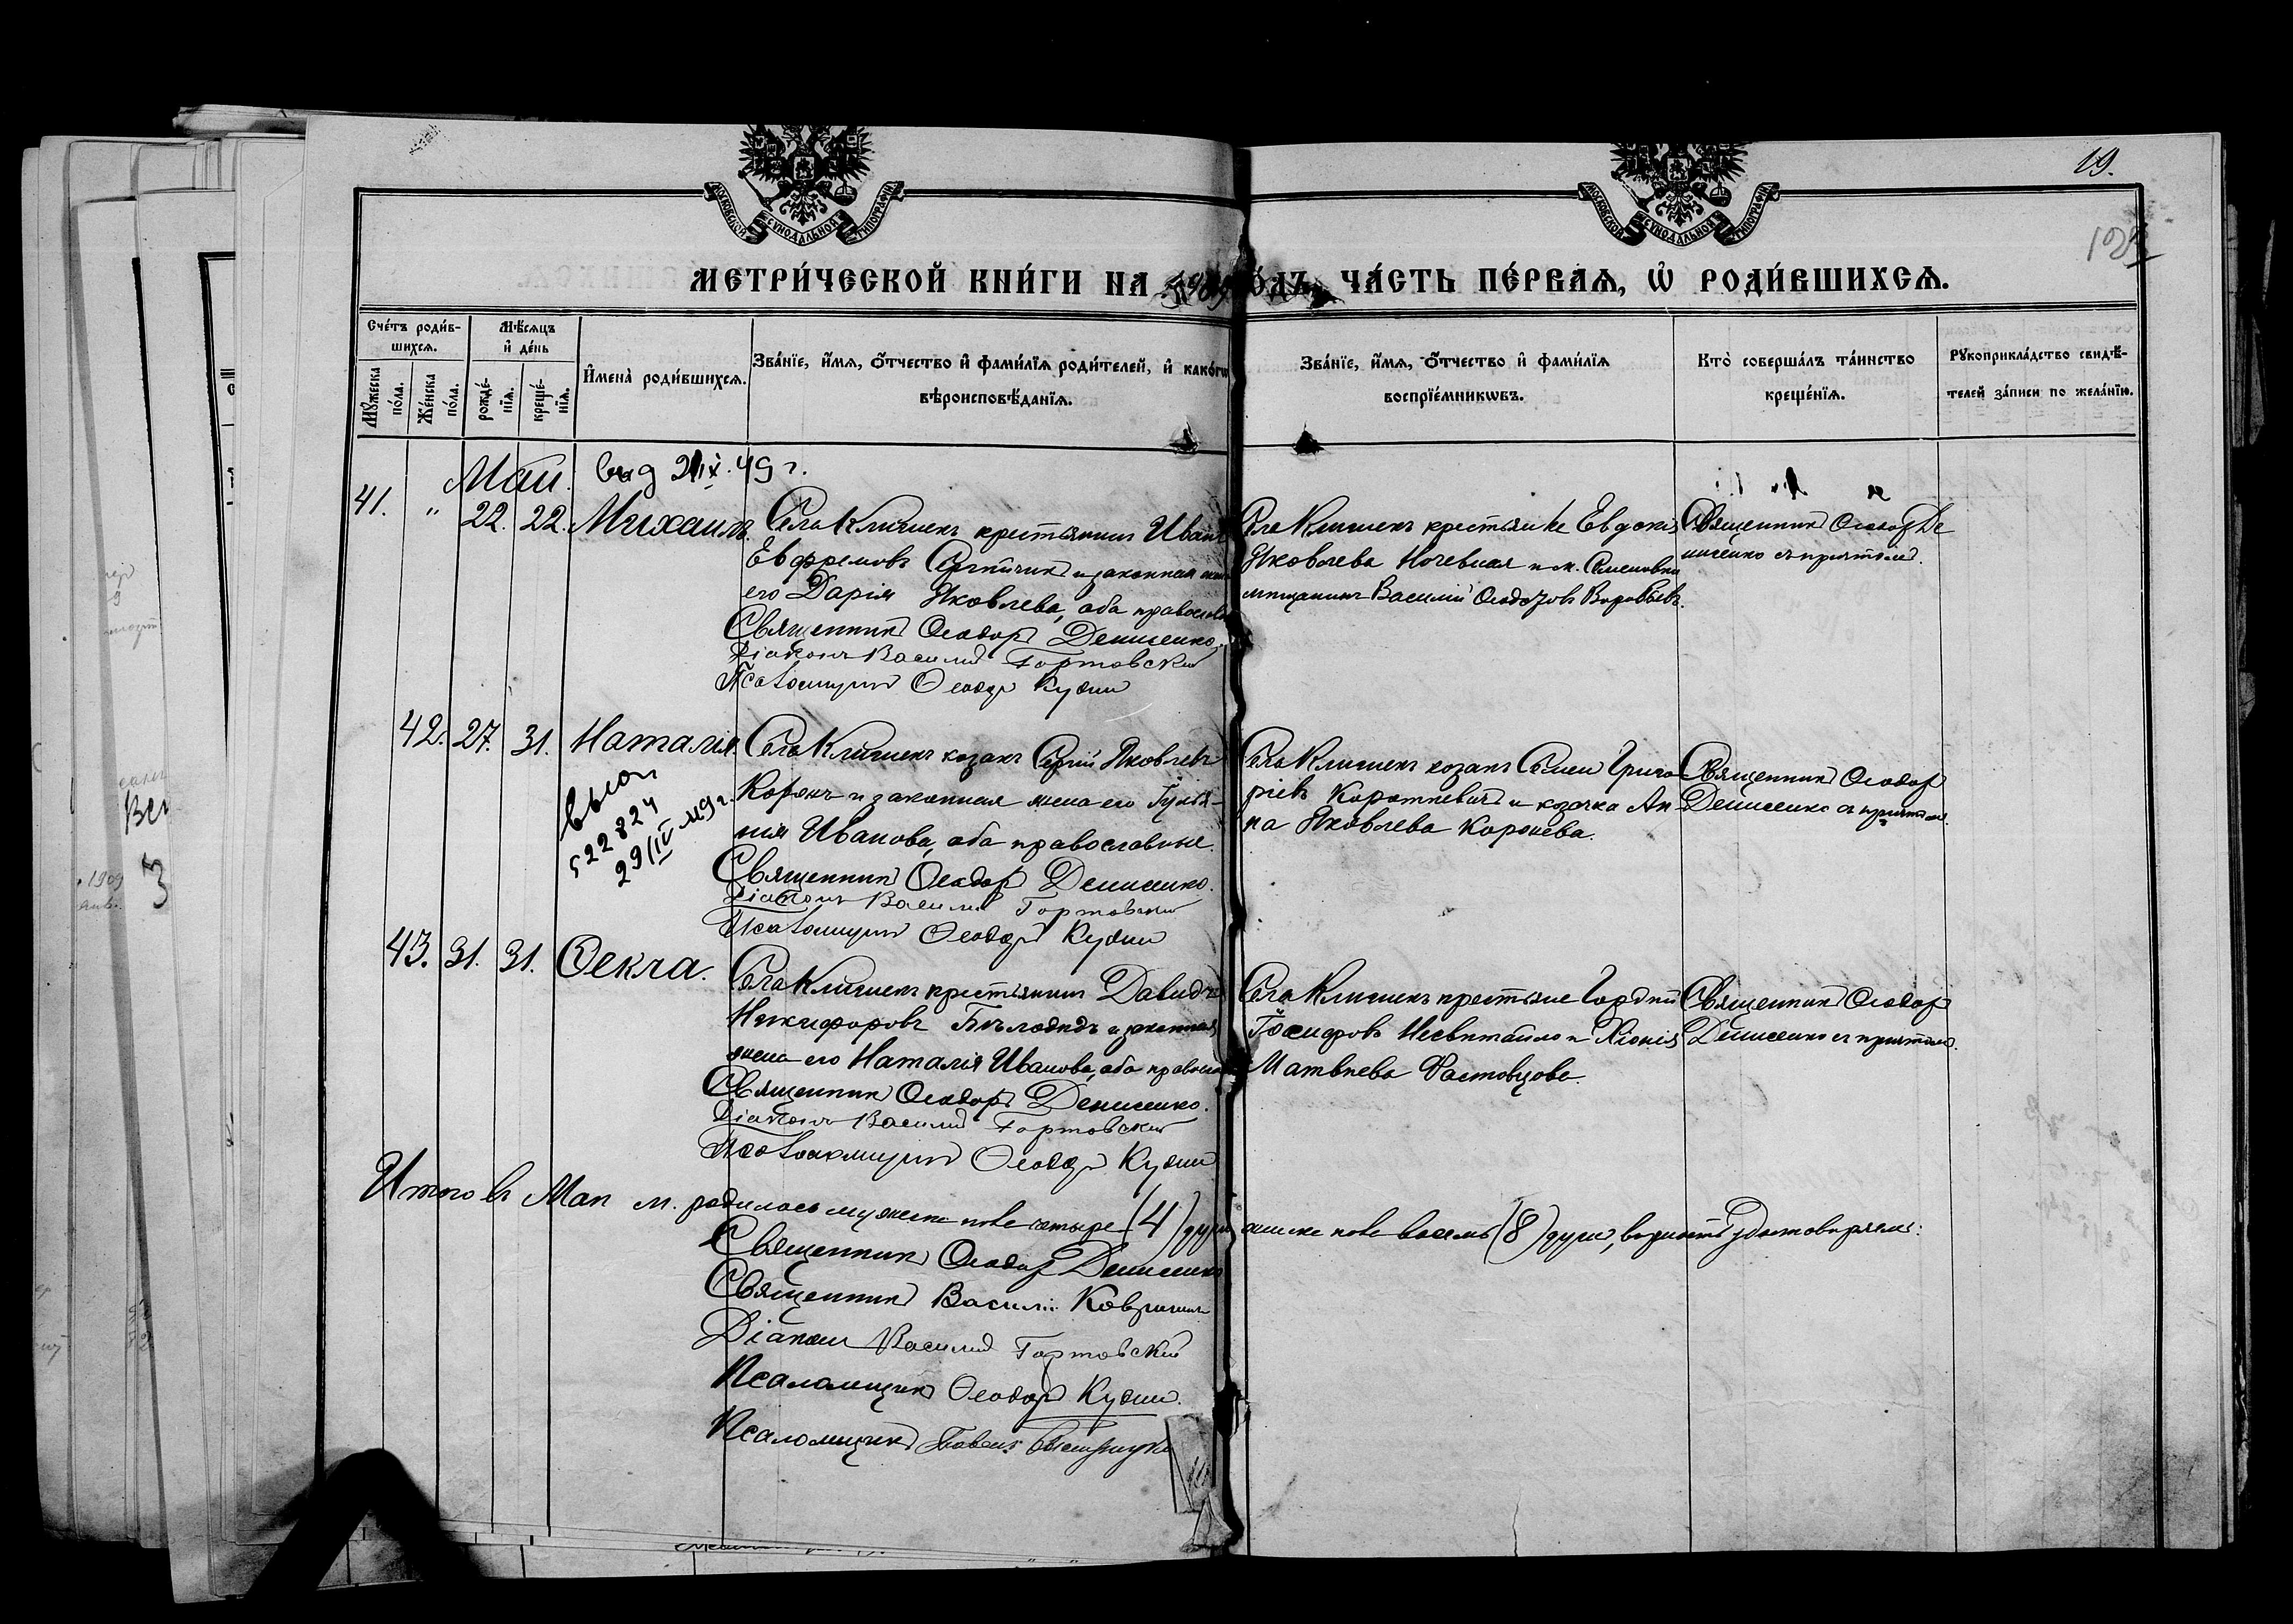 МОСКОВСКОЙ СѴНОДАЛЬНОЙ ТИПОГРАФІИ
МОСКОВСКОЙ СѴНОДАЛЬНОЙ ТИПОГРАФІИ
19.
МЕТРИ́ЧЕСКОЙ КНИ́ГИ НА 1909 ГО́ДЪ, ЧА́СТЬ ПЕ́РВАѦ, Ѡ҆ РОДИ́ВШИХСѦ.
Сче́тъ роди́в-
шихсѧ.
Мѣ́сѧцъ
и҆ де́нь
Мꙋ́жеска по́ла.
Же́нска по́ла.
рожде́-нїѧ.
креще́-нїѧ.
И҆мена̀ роди́вшихсѧ.
Зва́нїе, и҆́мѧ, ѻ҆́тчество и҆ фами́лїѧ роди́телей, и҆ како́гѡ
вѣроисповѣ́данїѧ.
Зва́нїе, и҆́мѧ, ѻ҆́тчество и҆ фами́лїѧ
воспрїе́мникѡвъ.
Кто̀ соверша́лъ та́инство
креще́нїѧ.
Рꙋкоприкла́дство свидѣ́-
телей за́писи по жела́нїю.
Май.
49 г.
41. " 22. 22. Михаилъ.
Села Клишекъ крестьянинъ Иванъ
Евфремовъ и законная жена
его Дарія Яковлева, оба православ
Священникъ Ѳеодоръ Денисенко.
Діаконъ Василій Гортовскій
Псаломщикъ Ѳеодоръ Кудин
Села Клишекъ крестьянка Евдокія
Яковлева и м.
мѣщанинъ Василій Ѳеодоровъ Воробьевъ.
Священникъ Ѳеодоръ Де
нисенко съ причтомъ.
42. 27. 31. Наталія.
522824
29/IV 49 г.
Села Клишекъ козакъ Сергій Яковлевъ
и законная жена его Гуліа-
нія Иванова, оба православные.
Священникъ Ѳеодоръ Денисенко.
Діаконъ Василій Гортовскій
Псаломщикъ Ѳеодоръ Кудин
Села Клишекъ козакъ Семен Григо
ріевъ Коротневичъ и козачка Ан-
на Яковлева
Священникъ Ѳеодоръ
Денисенко съ причтом.
43. 31. 31. Ѳекла.
Села Клишекъ крестьянинъ Давидъ
Никифоровъ Бѣлодѣдъ и законная
жена его Наталія Иванова, оба правосла
Священникъ Ѳеодоръ Денисенко.
Діаконъ Василій Гортовскій
Псаломщикъ Ѳеодоръ Кудин
Села Клишекъ крестьяне Гордѣй
Іосифовъ Несвитайло и Хіонія
Матвѣева Фастовцова.
Священникъ Ѳеодоръ
Денисенко съ причтомъ.
Итого въ Маѣ м. родилось мужеска пола четыре (4) души женска пола восемь (8) душъ, вѣрность удостовѣряемъ:
Священникъ Ѳеодоръ Денисенко
Священникъ Василій
Діаконъ Василій Гортовскій
Псаломщикъ Ѳеодоръ Кудин.
Псаломщикъ Павелъ